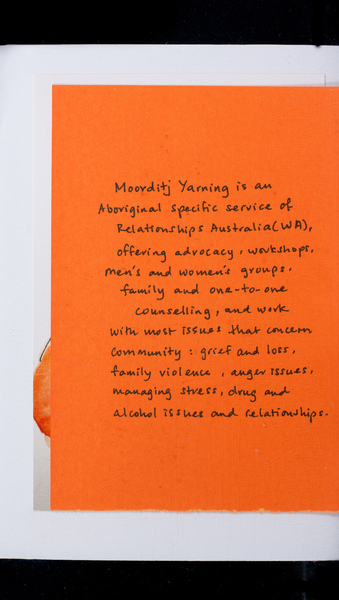 Moorditj Yarning is an
Aboriginal specific service of
Relationships Australia (WA),
offering advocacy, workshops,
men's and women's groups,
family and one-to-one
counselling, and work
with most issues that concern
community: grief and loss,
family violence, anger issues,
managing stress, drug and
alcohol issues and relationships.